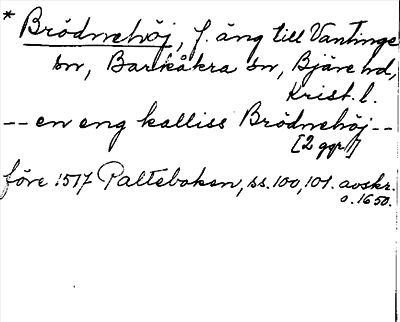 * Brödnehöj, f. äng till Vantinge
sn, Barkåkra sn, Bjäre hd,
Krist. l.
-- en eng kalliss Brödnehöj --
[2 ggr!]
före 1517 Palteboken, ss. 100, 101. avskr.
o. 1650.